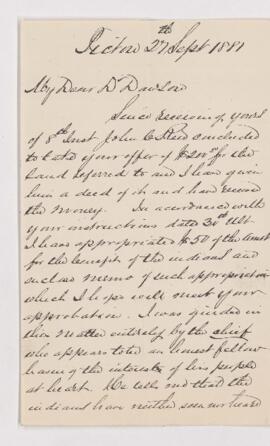 Pictou 27th Sept 1881
My Dear Dr Dawson
Since receiving yours
of 8th Inst John C. Reid concluded
to take your offer of $200.00 for the
land referred to and I have given
him a deed of it and have received
the money. In accordance with
your instructions dated 30th Ult
I have appropriated $50 of the amt
for the benefit of the indians and
enclose memo of such appropriation
which I hope will meet your
approbation. I was guided in
this matter entirely by the chief
who appears to be an honest fellow
having the interests of his people
at heart. He tells me that the
indians have neither seen nor heard